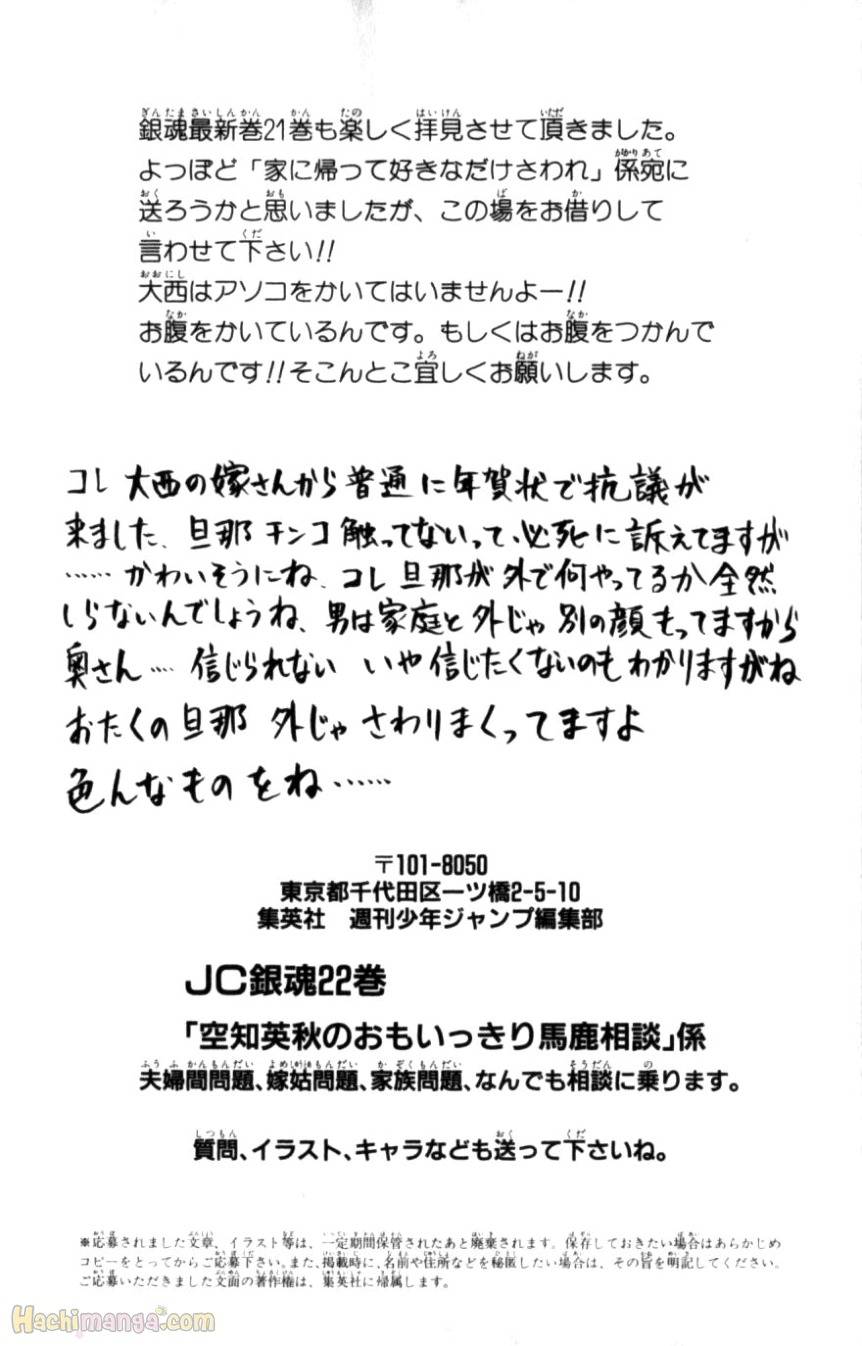 銀魂最新巻21巻も楽しく拝見させて頂きました。
よっぽど「家に帰って好きなだけさわれ」係宛に
送ろうかと思いましたが、この場をお借りして
言わせて下さい!!
大西はアソコをかいてはいませんよー!!
お腹をかいているんです。もしくはお腹をつかんで
いるんです!!そこんとこ宜しくお願いします。
コレ 大西の嫁さんから普通に年賀状で抗議が
来ました、旦那チンコ触ってないって、必死に訴えてますが
……かわいそうにね、コレ旦那が外で何やってるか全然
しらないんでしょうね、男は家庭と外じゃ別の顔もってますから
奥さん…. 信じられない いや信じたくないのもわかりますがね
おたくの旦那 外じゃさわりまくってますよ
色んなものをね……
〒101-8050
東京都千代田区一ツ橋2-5-10
集英社 週刊少年ジャンプ編集部
JC銀魂22巻
「空知英秋のおもいっきり馬鹿相談」係
夫婦間問題、嫁姑問題、家族問題、なんでも相談に乗ります。
質問、イラスト、キャラなども送って下さいね。
※応募されました文章、イラスト等は、一定期間保管されたあと廃棄されます。保存しておきたい場合はあらかじめ
コピーをとってからご応募下さい。また、掲載時に、名前や住所などを秘匿したい場合は、その旨を明記してください。
ご応募いただきました文面の著作権は、集英社に帰属します。
Hachimanga.com